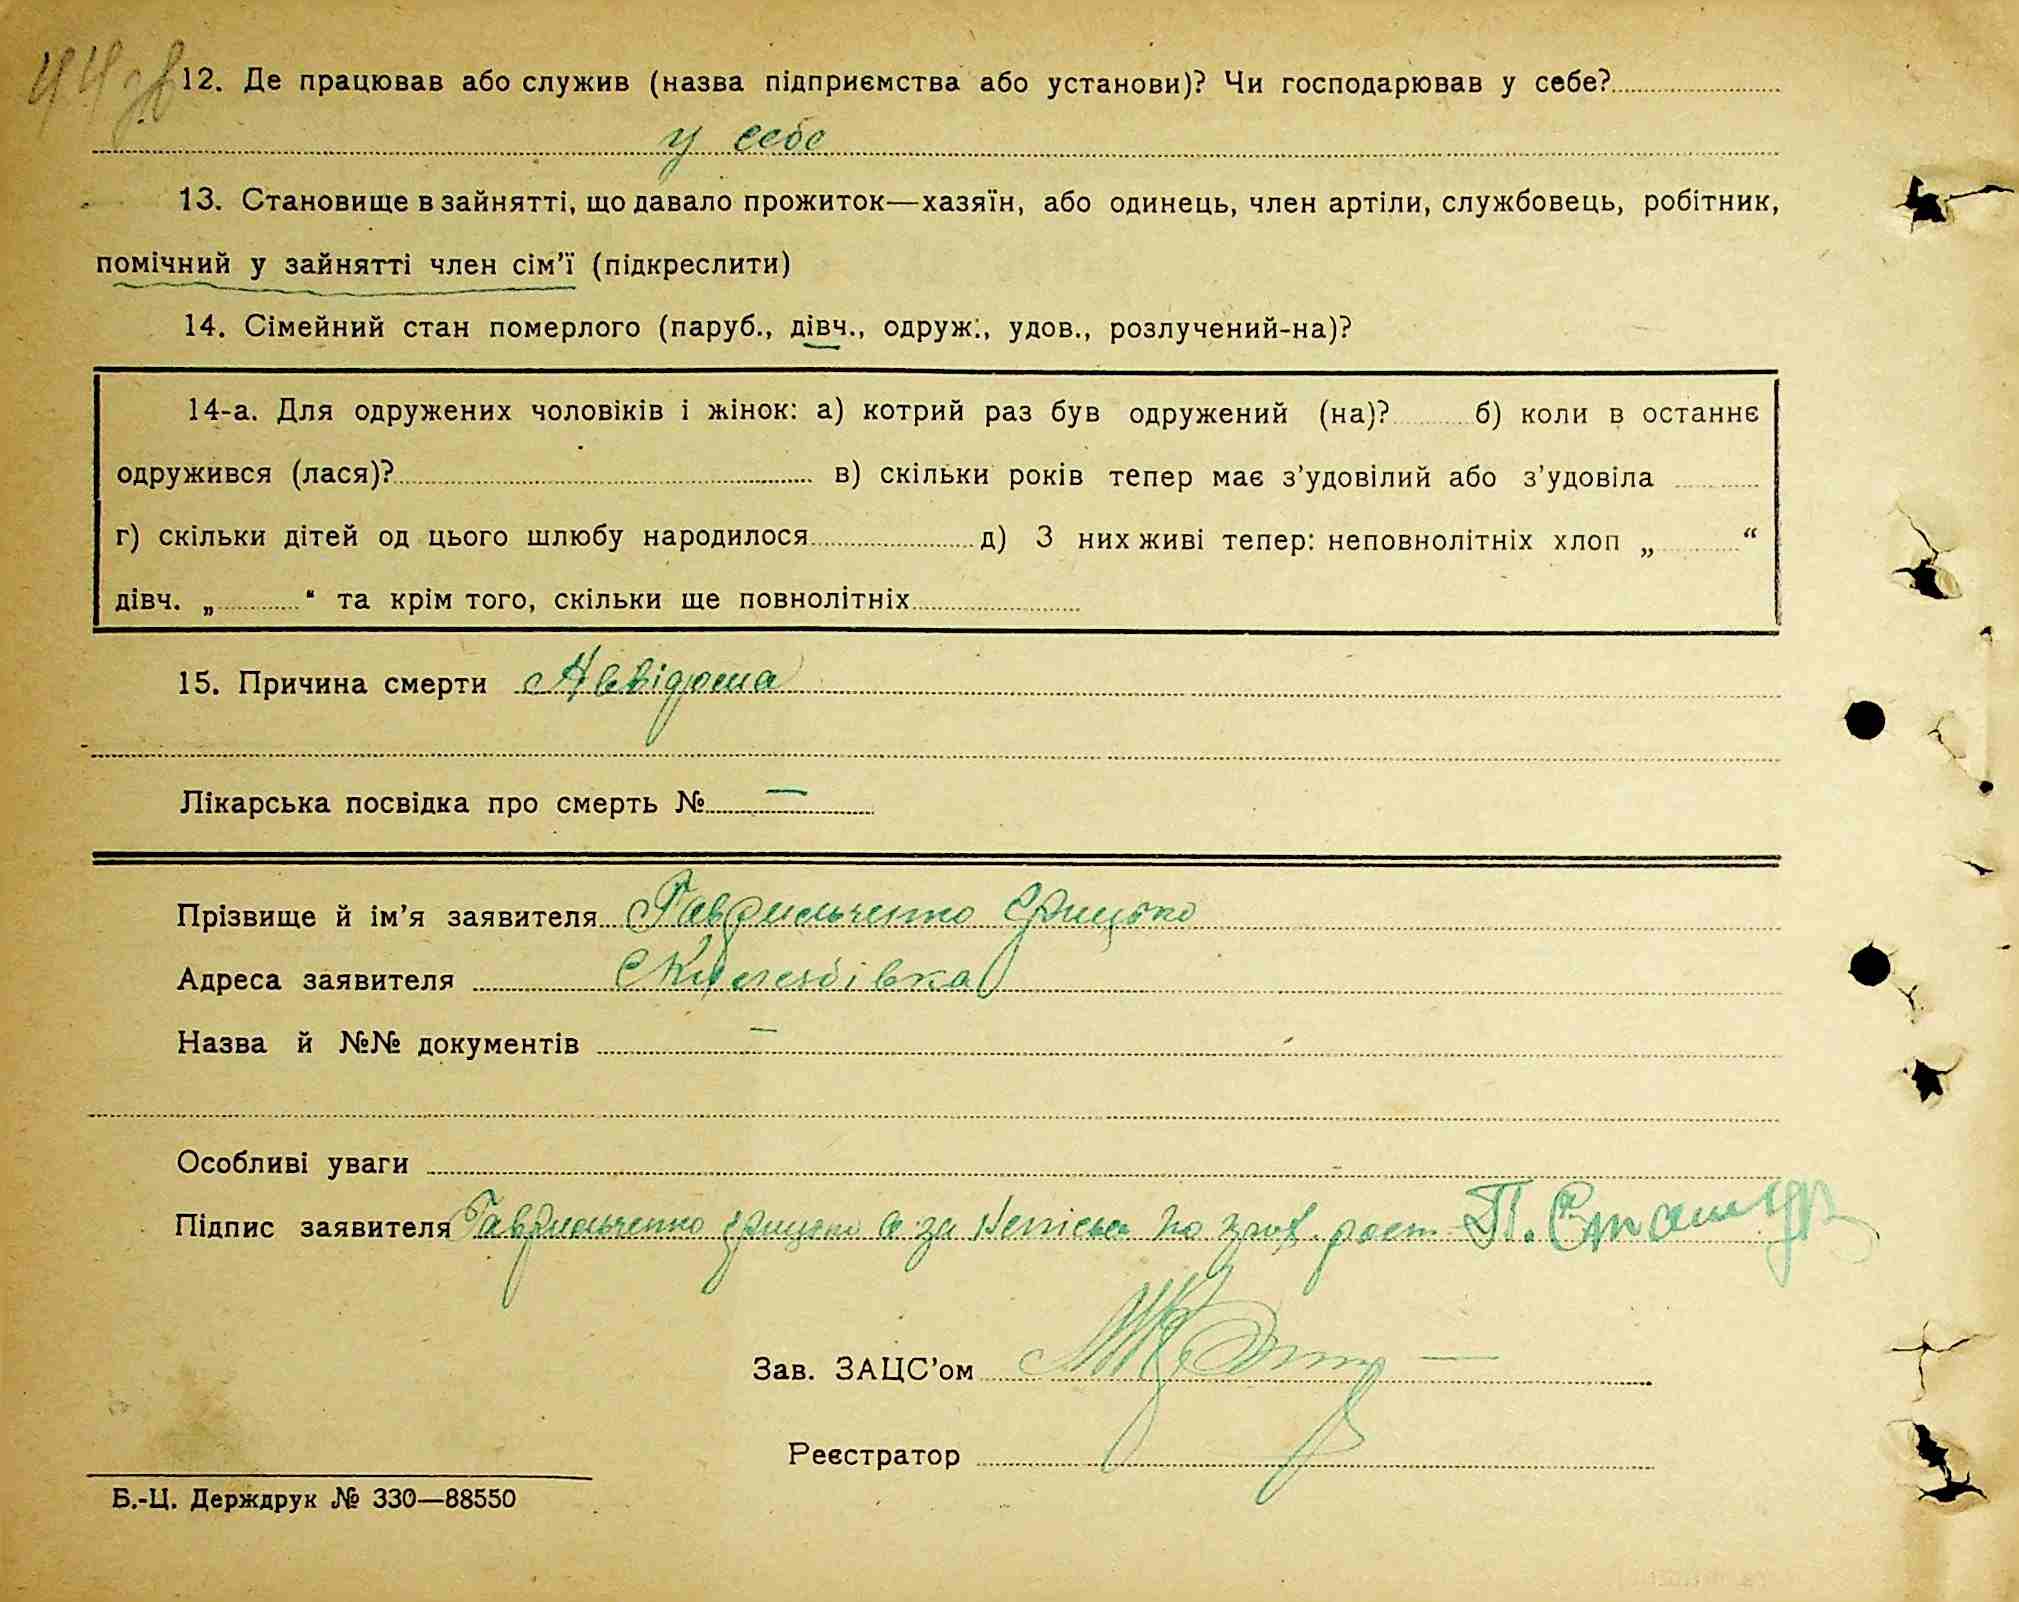 44 зв
12. Де працював або служив (назва підприємства або установи)? Чи господарював у себе?
у себе
13. Становище в зайнятті, що давало прожиток—хазяїн, або одинець, член артіли, службовець, робітник,
помічний у зайнятті член сім’ї (підкреслити)
14. Сімейний стан померлого (паруб., дівч., одруж., удов., розлучений-на)?
14-а. Для одружених чоловіків і жінок: а) котрий раз був одружений (на)? б) коли в останнє
одружився (лася)? в) скільки років тепер має з’удовілий або з’удовіла
г) скільки дітей од цього шлюбу народилося д) З них живі тепер: неповнолітніх хлоп „ “
дівч. „ “ та крім того, скільки ще повнолітніх
15. Причина смерти Невідома
Лікарська посвідка про смерть № —
Прізвище й ім’я заявителя Гаврильченко Грицько
Адреса заявителя
Назва й №№ документів —
Особливі уваги
Підпис заявителя Гаврильченко Грицько а за
Зав. ЗАЦС’ом
Реєстратор
Б.-Ц. Держдрук № 330—88550